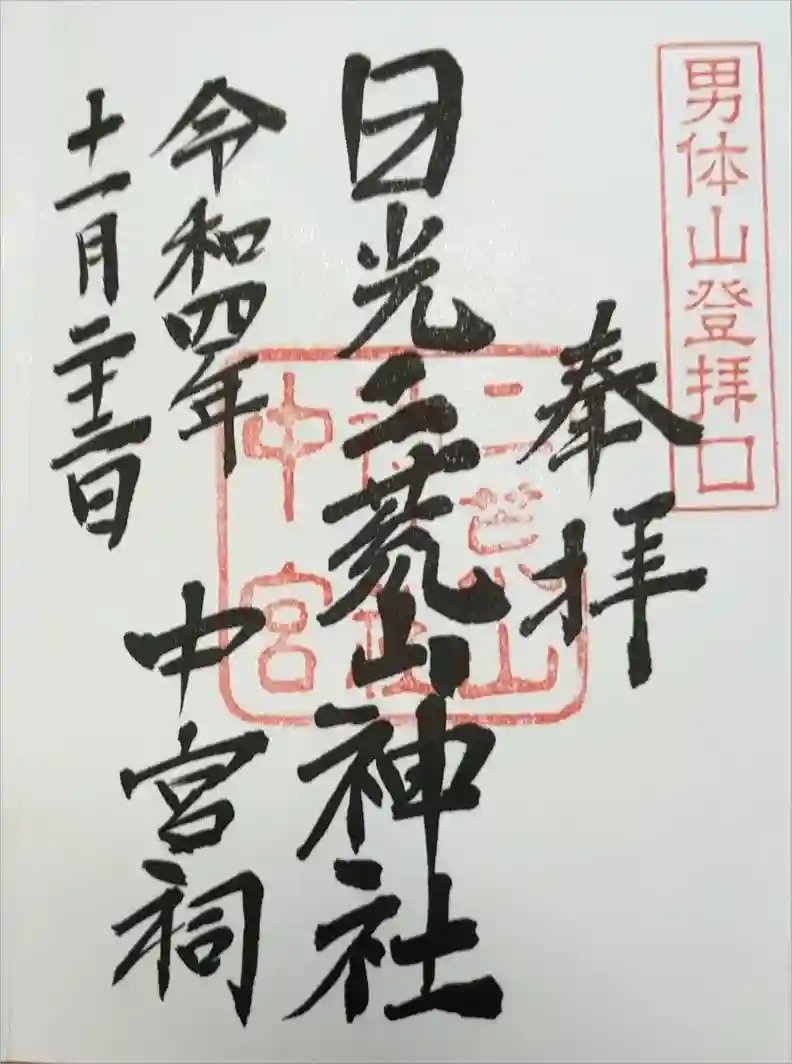 男体山登拝口
奉拝
日光二荒山神社
中宮祠
令和四年
十一月二十三日
二荒山
神社
中宮